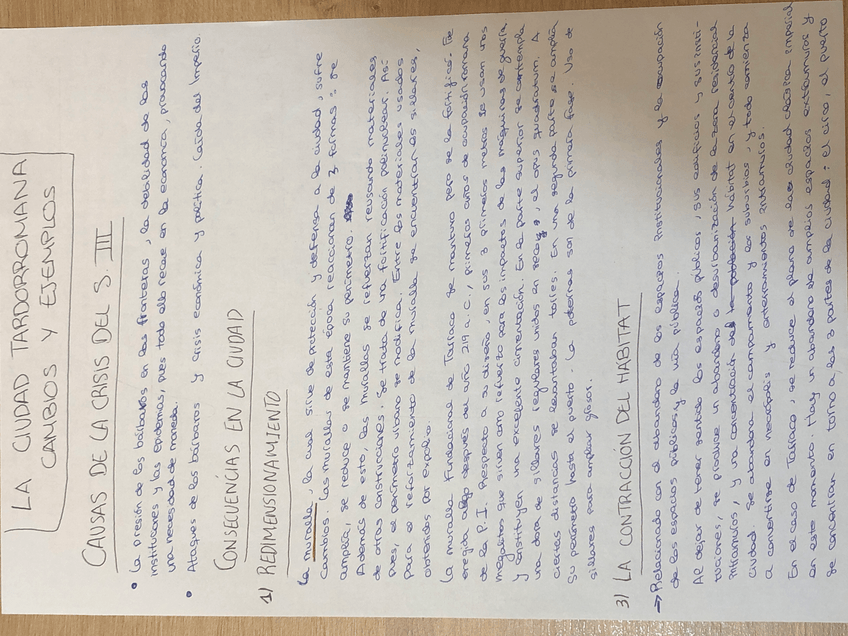 LA CIUDAD TARDORROMANA
CAMBIOS Y EJEMPLOS
CAUSAS DE LA CRISIS DEL S. III
• La presión de los bárbaros en las fronteras, la debilidad de las
instituciones y las epidemias, pues todo ello recae en la economía, provocando
una necesidad de moneda.
• Ataques de los bárbaros y crisis económica y política. Caída del Imperio.
CONSECUENCIAS EN LA CIUDAD
1) REDIMENSIONAMIENTO
La muralla, la cual sirve de protección y defensa a la ciudad, sufre
cambios. Las murallas de esta época reaccionan de 3 formas: se
amplía, se reduce o se mantiene su perímetro.
Además de esto, las murallas se refuerzan reusando materiales
de otras construcciones. Se trata de una fortificación polinuclear. Así
pues, el perímetro urbano se modifica. Entre los materiales usados
para el reforzamiento de la muralla se encuentran los sillares,
obtenidos por expolio.
La muralla Fundacional de Tarraco se mantuvo pero se la fortificó. Fue
eregida algo después del año 219 a.C, primeros años de ocupación romana
de la P.I. Respecto a su diseño, en sus 3 primeros metros se usan unos
megalitos que sirven como refuerzo para los impactos de las máquinas de guerra
y constituyen una excelente cimentación. En la parte superior se contempla
una obra de sillares regulares unidos en seco, el opus quadratum. A
ciertas distancias se levantaban torres. En una segunda parte se amplía
su perímetro hasta el puerto. La poternas son de la primera fase. Uso de
sillares para ampliar
3) LA CONTRACCIÓN DEL HÁBITAT
→ Relacionado con el abandono de los espacios institucionales y la ocupación
de los espacios públicos y la vía pública.
Al dejar de tener sentido los espacios públicos, sus edificios y sus insti-
tuciones, se produce un abandono o desurbanización de la zona residencial
intramuros, y una concentración del hábitat en el centro de la
ciudad. Se abandona el campamento y los suburbios, y todo comienza
a convertirse en necrópolis y enterramientos intramuros.
En el caso de Tarraco, se reduce el plano de la ciudad clásica imperial
en este momento. Hay un abandono de amplios espacios extramuros y
se concentran en torno a las 3 partes de la ciudad: el circo, el puerto